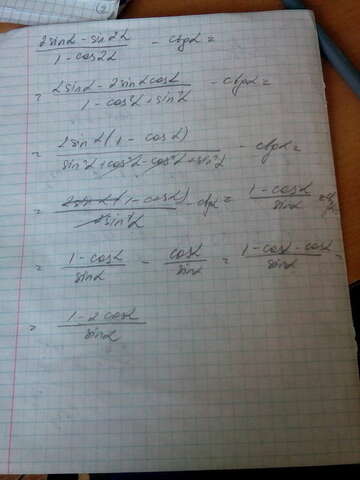 (2sinα - sin2α)/(1 - cos2α) - ctgα =
= (2sinα - 2sinαcosα)/(1 - cos²α + sin²α) - ctgα =
= 2sinα(1 - cosα)/(sin²α + cos²α - cos²α + sin²α) - ctgα =
= 2sinα(1 - cosα)/(2sin²α) - ctgα = (1 - cosα)/sinα
= (1 - cosα)/sinα - cosα/sinα = (1 - cosα - cosα)/sinα =
= (1 - 2cosα)/sinα